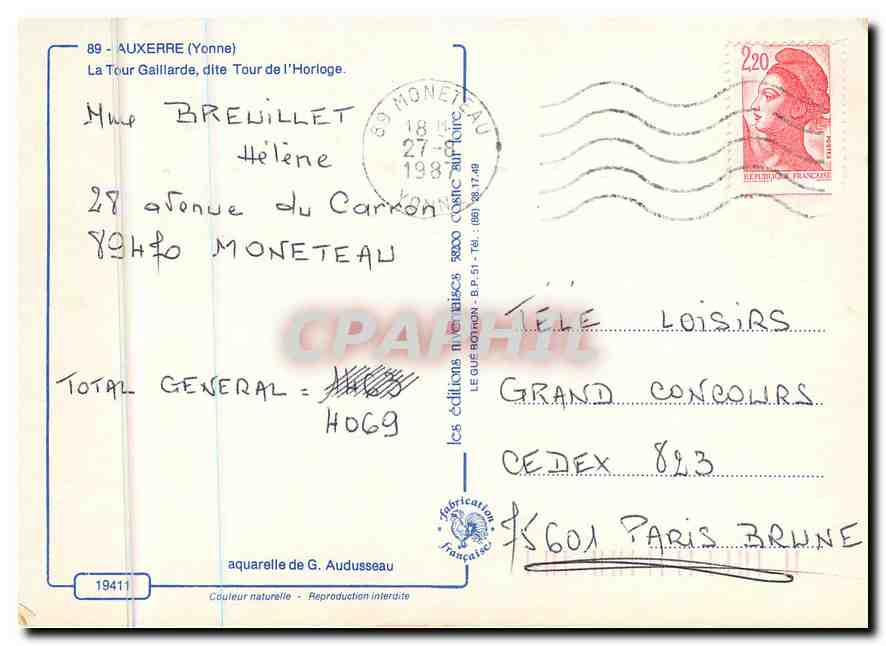 89 - AUXERRE (Yonne)
La Tour Gaillarde, dite Tour de l'Horloge.
Mme BREUILLET
Hélène
28 avenue du Carron
89470 MONETEAU
TOTAL GENERAL =
4069
aquarelle de G. Audusseau
19411
Couleur naturelle - Reproduction interdite
89 MONETEAU
18 H
27-8
1987
YONNE
les éditions nivernaises 58200 cosne sur loire
LE GUÉ BOTHON - B.P. 51 - Tél. : (86) 28.17.49
fabrication française
2,20
POSTES
REPUBLIQUE FRANÇAISE
TÉLÉ LOISIRS
GRAND CONCOURS
CEDEX 823
75601 PARIS BRUNE
CPAPHIL